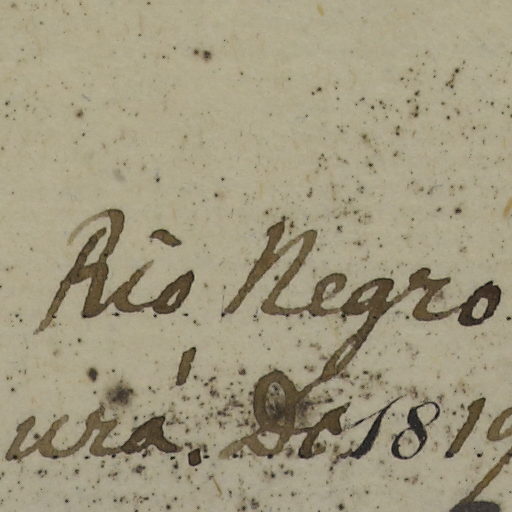 Rio Negro
urá. Dc 1819